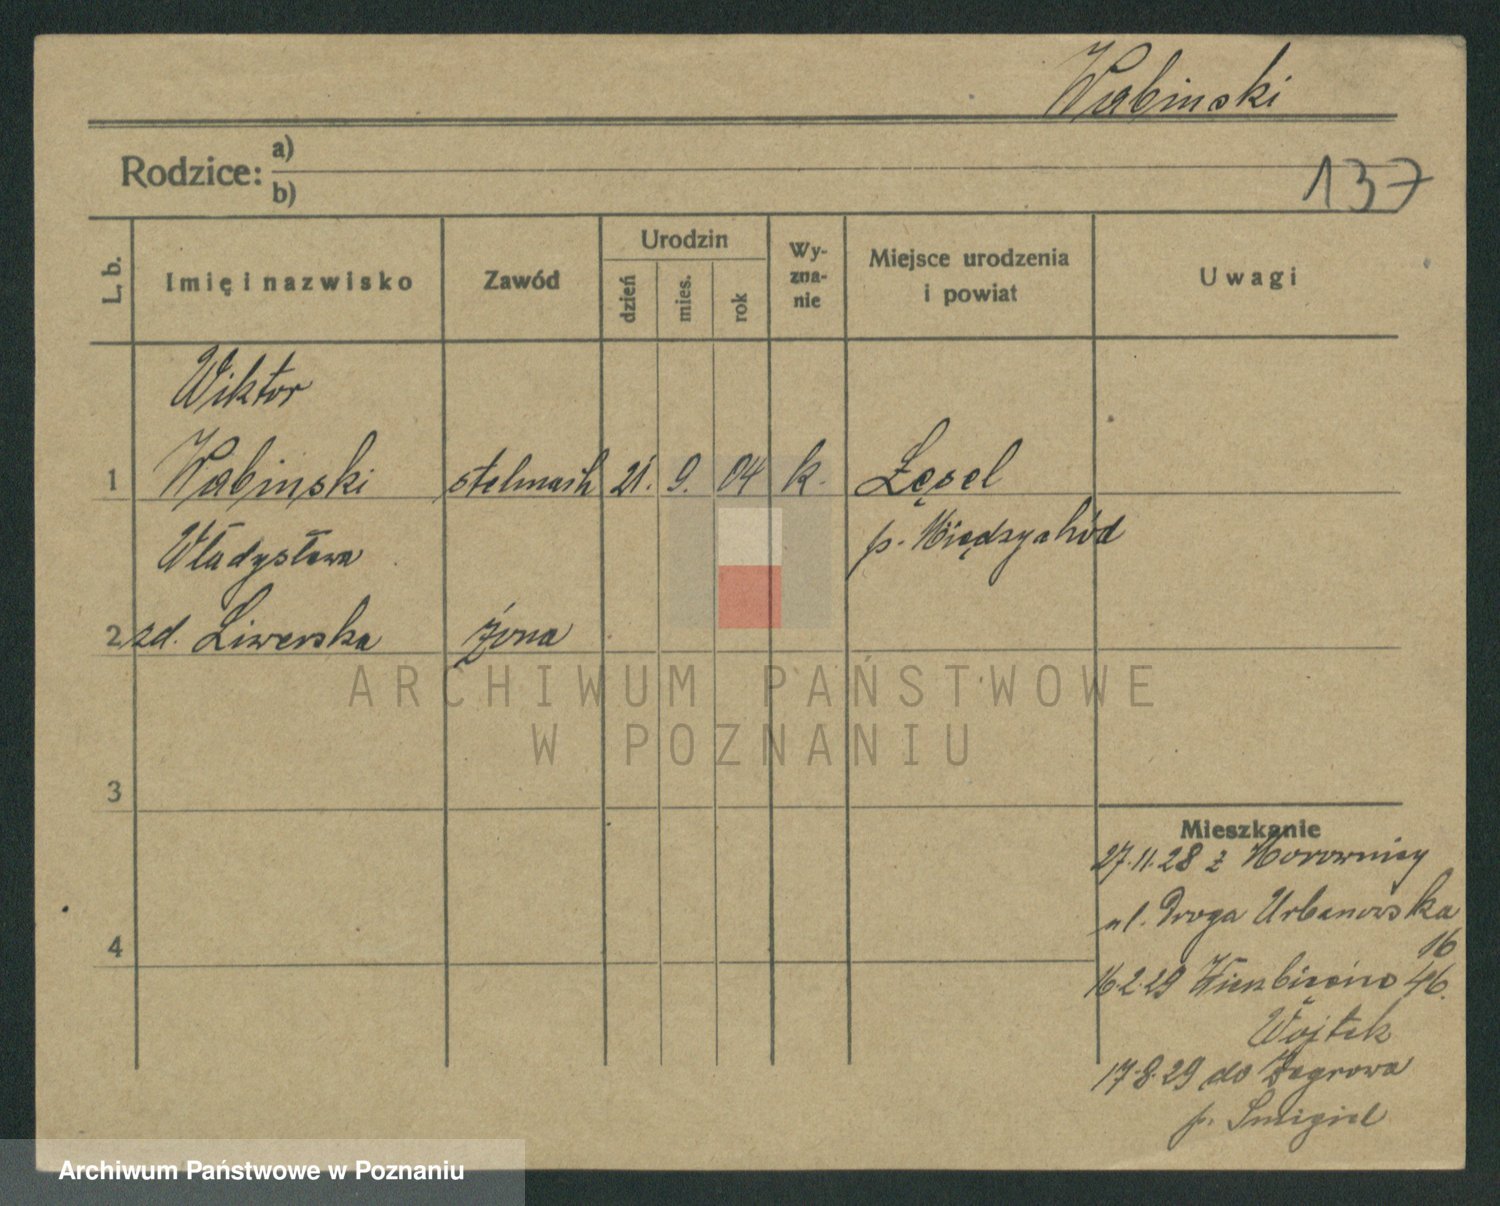 Wabinski
Rodzice: a)
b)
137
L. b.
Imię i nazwisko
Zawód
Urodzin
dzień
mies.
rok
Wy-
zna-
nie
Miejsce urodzenia
i powiat
Uwagi
Wiktor
1 Wabinski stelmach 21. 9. 04 k.
Władysława p. Międzychód
2 zd. Liwerska żona
ARCHIWUM PAŃSTWOWE
W POZNANIU
3
Mieszkanie
27.11.28 z
ul. Droga Urbanowska
4
16
16.2.29 46.
Wojtek
17.8.29 do
p. Smigiel
Archiwum Państwowe w Poznaniu